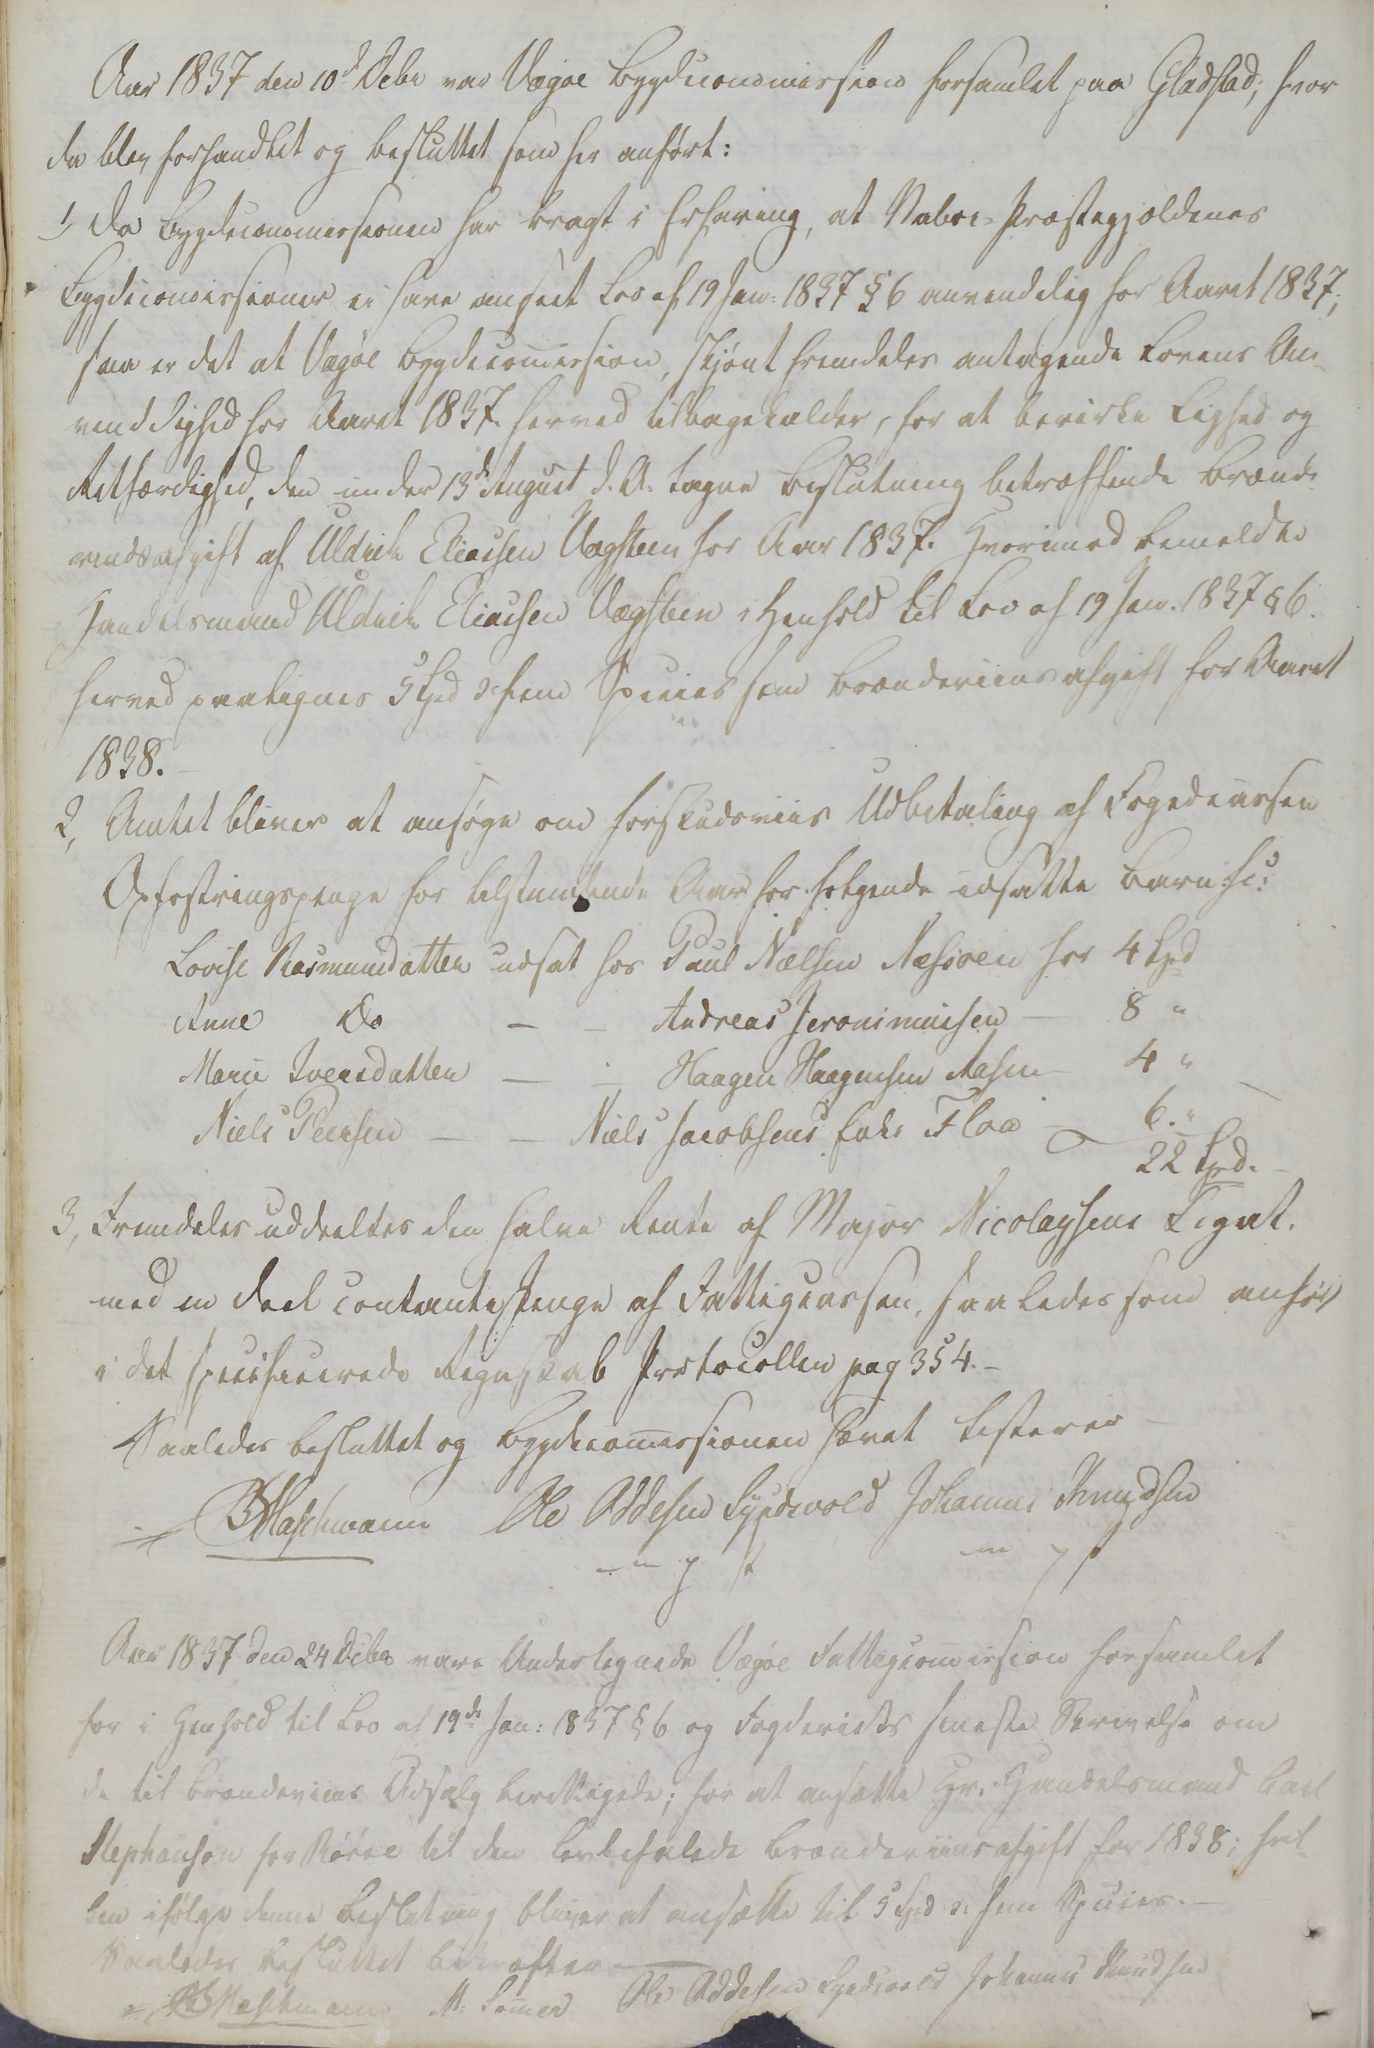 Aar 1837 den 10d Debr var Vægøe Bygdecommission forsamlet paa Gladstad; hvor
da blev forhandlet og besluttet som her anført:
1, Da Bygdecommissionen har bragt i Erfaring, at Naboe-Præstegjældenes
Bygdecommissioner ei have anseet Lov af 19 Jan: 1837 § 6 anvendelig for Aaret 1837;
saa er det at Vægøe Bygdecom̄ission, skjønt fremdeles antagende Lovens An-
vendelighed for Aaret 1837. herved tilbagekalder, for at bevirke Lighed og
Retfærdighed, den under 13de August d. A. tagne Beslutning betræffende Brænde
viinsafgift af Uldrich Eliasen Vægsteen for Aar 1837. Hvorimod bemeldte
Handelsmand Uldrich Eliasen Vægsteen i Henhold til Lov af 19 Jan. 1837 § 6.
herved paalignes 5 Spd ɔ: fem Species som Brændeviinsafgift for Aaret
1838.
2, Amtet bliver at ansøge om forskudsviis Udbetaling af Fogedcassen
Opfostringspenge for tilstundende Aar for følgende udsatte Børn sc:
Lovise Rasmusdatter udsat hos Paul Nielsen for 4 Spd
Anne Do — — Andreas Jeronimusen — 8 "
Marie Iversdatter — — Haagen Haagensen Aasen — 4 "
Niels Peersen — — Niels Jacobsens Enke Floa — 6. "
22 Spd.
3, Fremdeles uddeeltes den halve Rente af Major Nicolaysens Legat.
med en Deel contante Penge af Fattigcassen, saaledes som anført
i det specificerede Regnskab Protocollen pag 354.—
Saaledes besluttet og Bygdecom̄issionen hævet testerer —
Maschmann Ole Oddesen Sundsvold Johannes Knudsen
m p s m p s
Aar 1837 den 24 Debr vare Undertegnede Vægøe Fattigcom̄ission forsamlet
for i Henhold til Lov af 19de Jan: 1837 § 6 og Fogderiets seneste Skrivelse om
de til Brændeviins Udsalg berettigede; for at ansætte Hr. Handelsmand Carl
Stephanson for Rørøe til den lovbefalede Brændeviinsafgift for 1838; hvil-
ken ifølge denne Beslutning bliver at ansætte til 5 Spd ɔ: fem Species.—
Saaledes besluttet bekræfter —
Maschmann M: Som̄er Ole Oddesen Sundsvold Johannes Knudsen